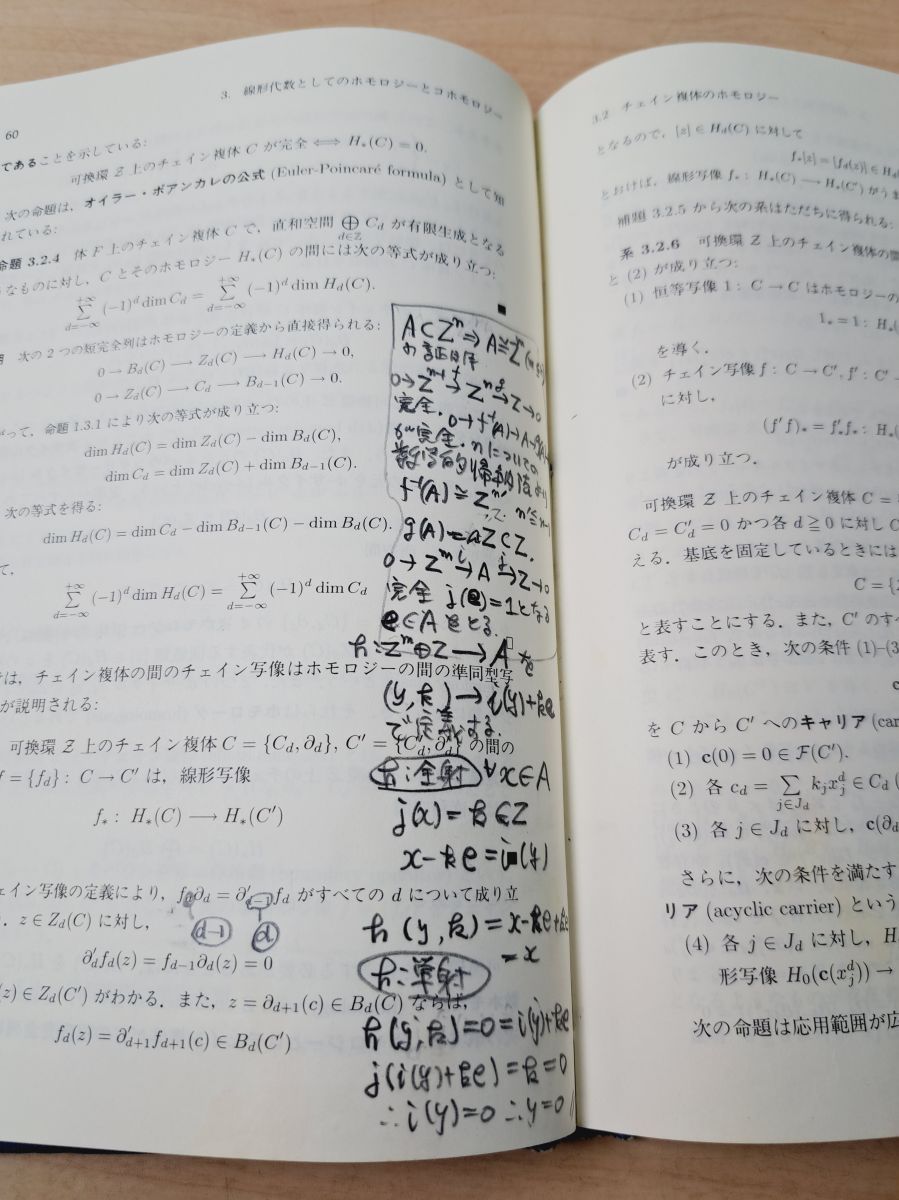 60
3. 線形代数としてのホモロジーとコホモロジー
であることを示している:
可換環 Z 上のチェイン複体 C が完全 ⟺ H_*(C) = 0.
次の命題は, オイラー・ポアンカレの公式 (Euler-Poincaré formula) として知
れている:
命題 3.2.4 体 F 上のチェイン複体 C で, 直和空間 ⊕_{d∈Z} C_d が有限生成となる
うなものに対し, C とそのホモロジー H_*(C) の間には次の等式が成り立つ:
∑_{d=-∞}^{+∞} (-1)^d dim C_d = ∑_{d=-∞}^{+∞} (-1)^d dim H_d(C). ■
次の 2 つの短完全列はホモロジーの定義から直接得られる:
0 → B_d(C) → Z_d(C) → H_d(C) → 0,
0 → Z_d(C) → C_d → B_{d-1}(C) → 0.
がって, 命題 1.3.1 により次の等式が成り立つ:
dim H_d(C) = dim Z_d(C) − dim B_d(C),
dim C_d = dim Z_d(C) + dim B_{d-1}(C).
次の等式を得る:
dim H_d(C) = dim C_d − dim B_{d-1}(C) − dim B_d(C).
て.
∑_{d=-∞}^{+∞} (-1)^d dim H_d(C) = ∑_{d=-∞}^{+∞} (-1)^d dim C_d
は, チェイン複体の間のチェイン写像はホモロジーの間の準同型写
が説明される:
可換環 Z 上のチェイン複体 C = {C_d, ∂_d}, C′ = {C′_d, ∂′_d} の間の
f = {f_d} : C → C′ は, 線形写像
f_* : H_*(C) → H_*(C′)
ェイン写像の定義により, f_d∂_d = ∂′_{d-1}f_d がすべての d について成り立
d-1
d
. z ∈ Z_d(C) に対し,
∂′_d f_d(z) = f_{d-1}∂_d(z) = 0
(z) ∈ Z_d(C′) がわかる. また, z = ∂_{d+1}(c) ∈ B_d(C) ならば,
f_d(z) = ∂′_{d+1}f_{d+1}(c) ∈ B_d(C′)
A⊂Z^n ⇒ A≅Z^m
の証明は
0→Z^{n-1}→^f Z^n→^g Z→0
完全. 0→f^{-1}(A)→A→g(A)→
が完全. nについての
数学的帰納法より
f^{-1}(A)≅Z^m
g(A)=aZ⊂Z.
0→Z^m→^i A→^j Z→0
完全 j(e)=1となる
e∈A をとる.
h:Z^m⊕Z→A を
(y,k)→i(y)+ke
で定義する.
h:全射 ∀x∈A
j(x)=k∈Z
x-ke=i(y)
h(y,k)=x-ke+ke
=x
h:単射
h(y,k)=0=i(y)+ke
j(i(y)+ke)=k=0
∴i(y)=0 ∴y=0
3.2 チェイン複体のホモロジー
となるので, [z] ∈ H_d(C) に対して
f_*[z] = [f_d(z)] ∈ H
とおけば, 線形写像 f_* : H_*(C) → H_*(C′) がう
補題 3.2.5 から次の系はただちに得られる:
系 3.2.6 可換環 Z 上のチェイン複体の間
と (2) が成り立つ:
(1) 恒等写像 1 : C → C はホモロジーの
1_* = 1 : H
を導く.
(2) チェイン写像 f : C → C′, f′ : C′
に対し,
(f′f)_* = f′_*f_* : H
が成り立つ.
可換環 Z 上のチェイン複体 C =
C_d = C′_d = 0 かつ各 d ≧ 0 に対し C
える. 基底を固定しているときには
C = {
と表すことにする. また, C′ のす
表す. このとき, 次の条件 (1)–(3
c
を C から C′ へのキャリア (car
(1) c(0) = 0 ∈ F(C′).
(2) 各 c_d = ∑_{j∈J_d} k_j x_j^d ∈ C_d (
(3) 各 j ∈ J_d に対し, c(∂_d
さらに, 次の条件を満たす
リア (acyclic carrier) という
(4) 各 j ∈ J_d に対し, H
形写像 H_0(c(x_j^d)) →
次の命題は応用範囲が広